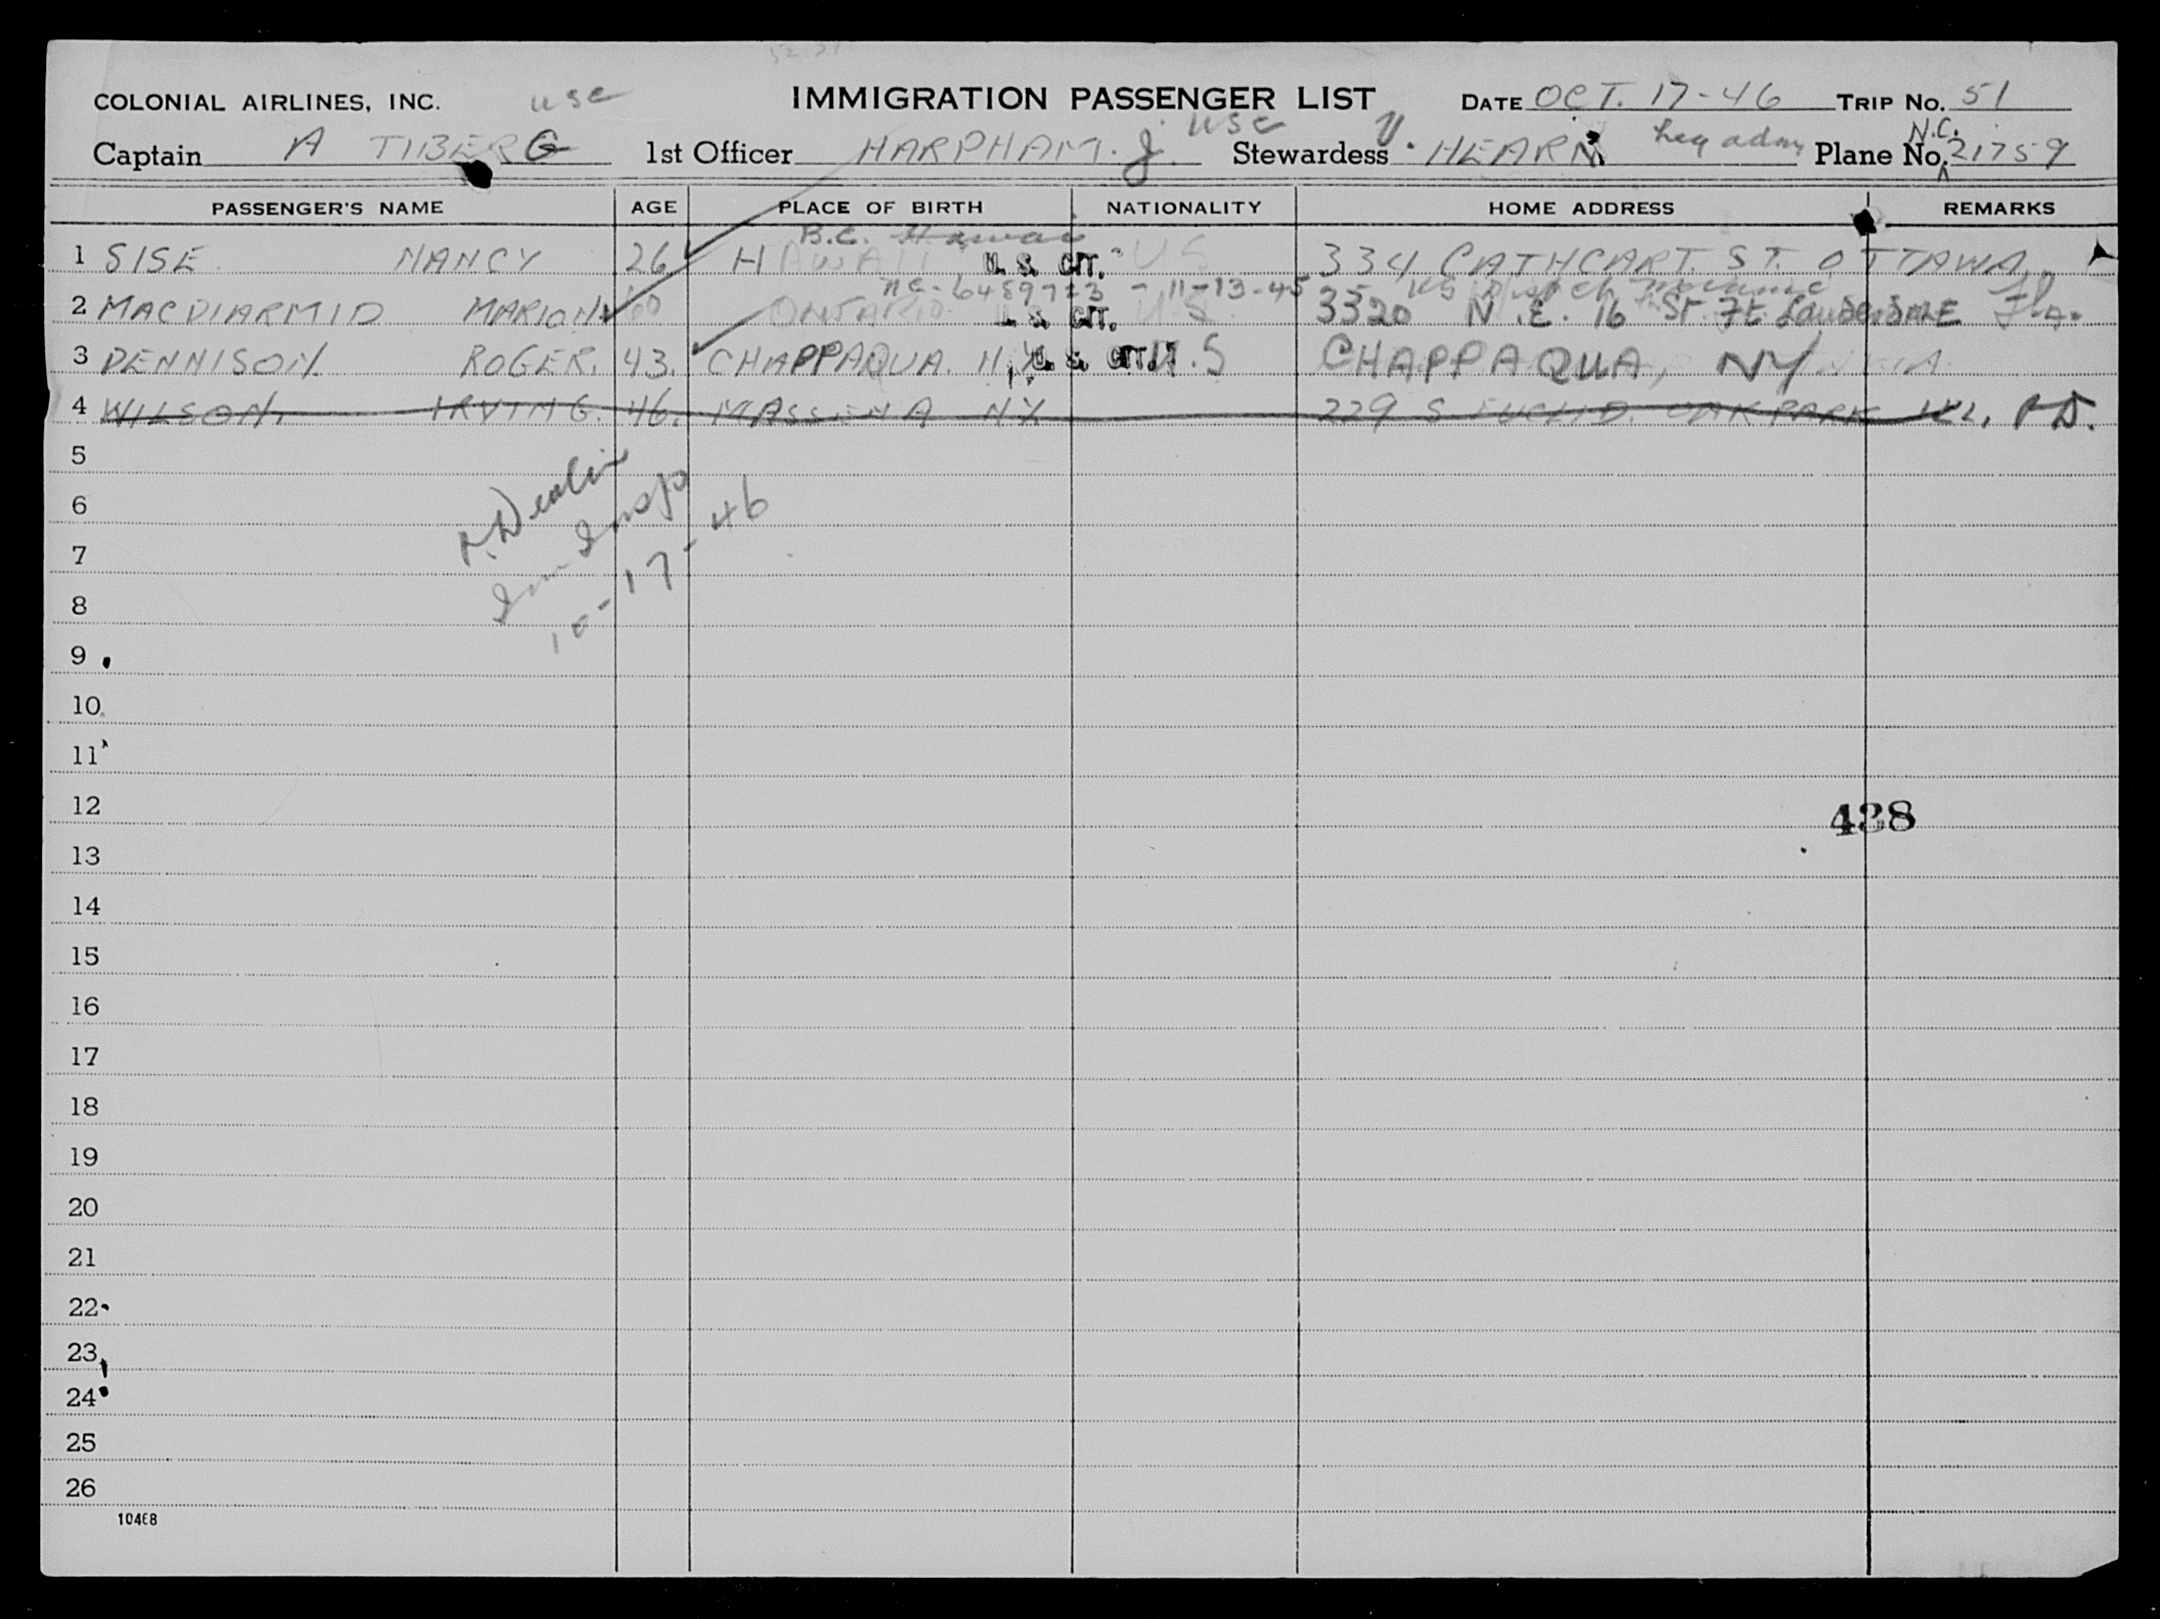 COLONIAL AIRLINES, INC. usc IMMIGRATION PASSENGER LIST DATE OCT. 17-46 TRIP NO. 51
Captain A TIBERG 1st Officer HARPHAM. J. usc Stewardess V. HEARN leg adm Plane No. N.C. 21759
PASSENGER'S NAME AGE PLACE OF BIRTH NATIONALITY HOME ADDRESS REMARKS
B.C. Hawaii
1 SISE NANCY 26 HAWAII U. S. CIT. US 334 CATHCART ST. OTTAWA
nc-6489723 - 11-13-45
2 MACDIARMID MARION 60 ONTARIO U. S. CIT. U.S. 3320 N.E. 16 St. Ft Lauderdale Fla.
3 DENNISON ROGER. 43. CHAPPAQUA. N.Y. U. S. CIT. U.S CHAPPAQUA, NY
4 WILSON, IRVING. 46. MASSENA NY 229 S EUCLID. OAK PARK ILL, RD.
5
6
7
8
9
10
11
12
13
14
15
16
17
18
19
20
21
22
23
24
25
26
Imm Insp
10-17-46
438
10468